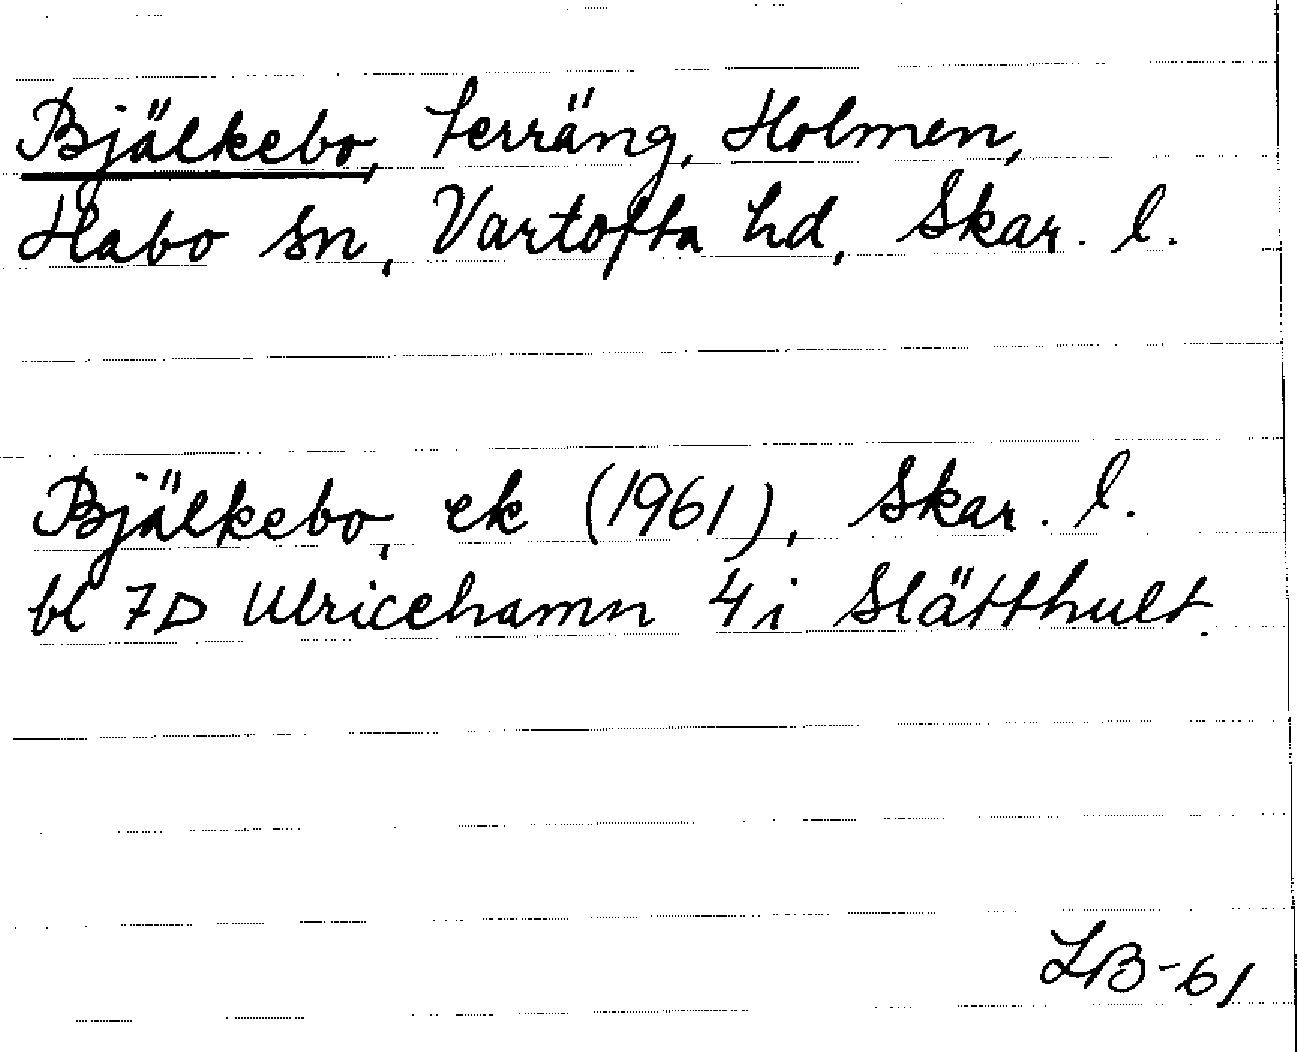 Bjälkebo, terräng, Holmen,
Habo sn, Vartofta hd, Skar. l.
Bjälkebo, ek (1961), Skar. l.
bl 7D Ulricehamn 4i Slätthult.
LB-61